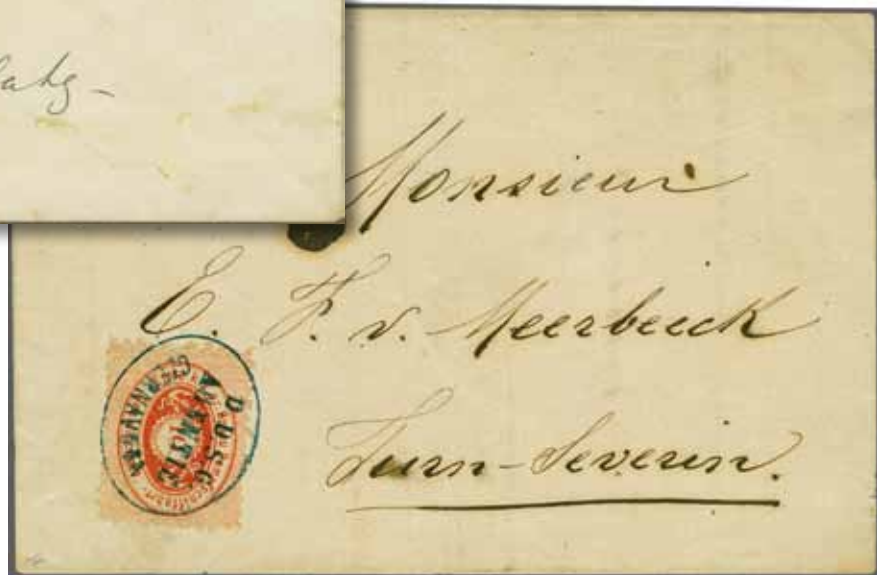 Monsieur
E. F. v. Meerbeeck
Turn-Severin.
D.D.S.G.
AGENTIE
CZERNAVODA